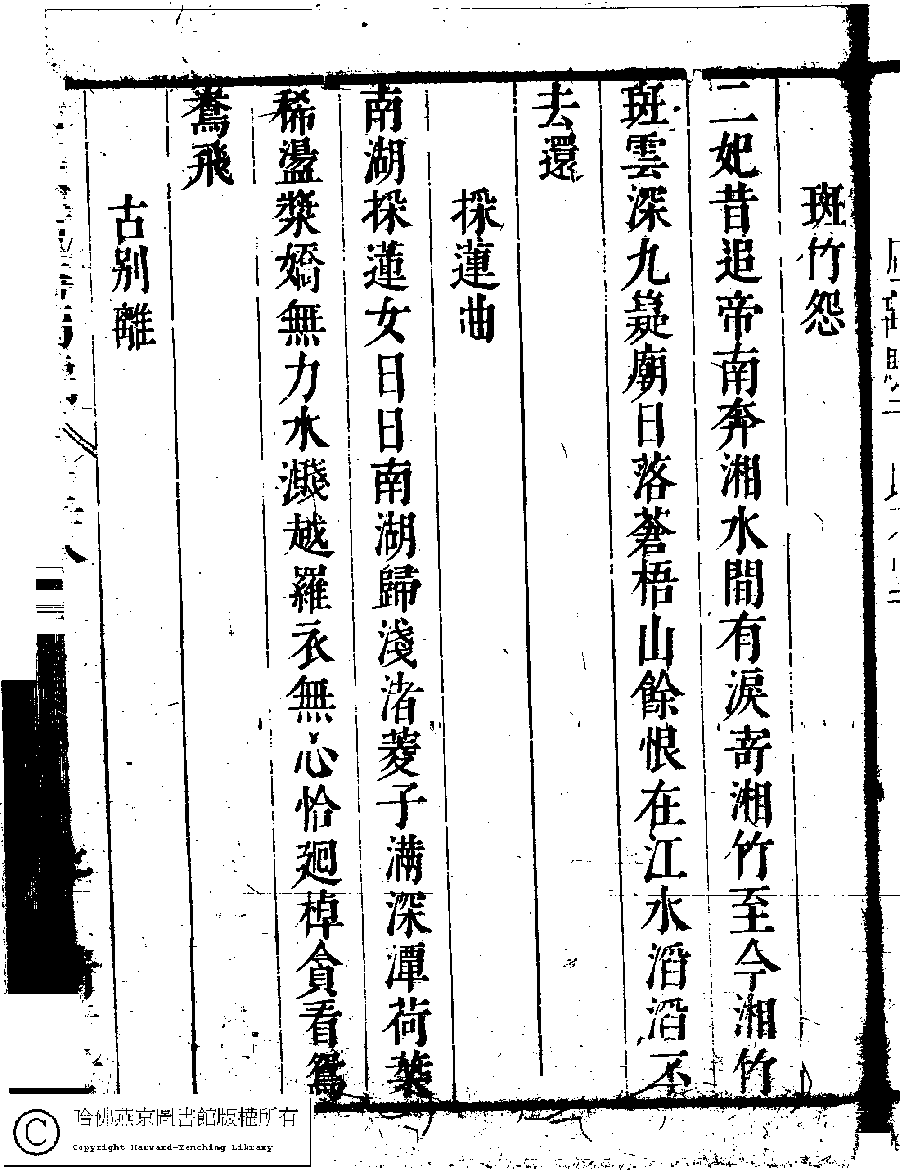 斑竹怨
二妃昔追帝南奔湘水間有淚寄湘竹至今湘竹
斑雲深九嶷廟日落蒼梧山餘恨在江水滔滔不
去還
採蓮曲
南湖採蓮女日日南湖歸淺渚菱子滿深潭荷葉
稀盪槳嬌無力水濺越羅衣無心恰廻棹貪看鴛
鴦飛
古別離
哈佛燕京圖書館版權所有
Copyright Harvard-Yenching Library